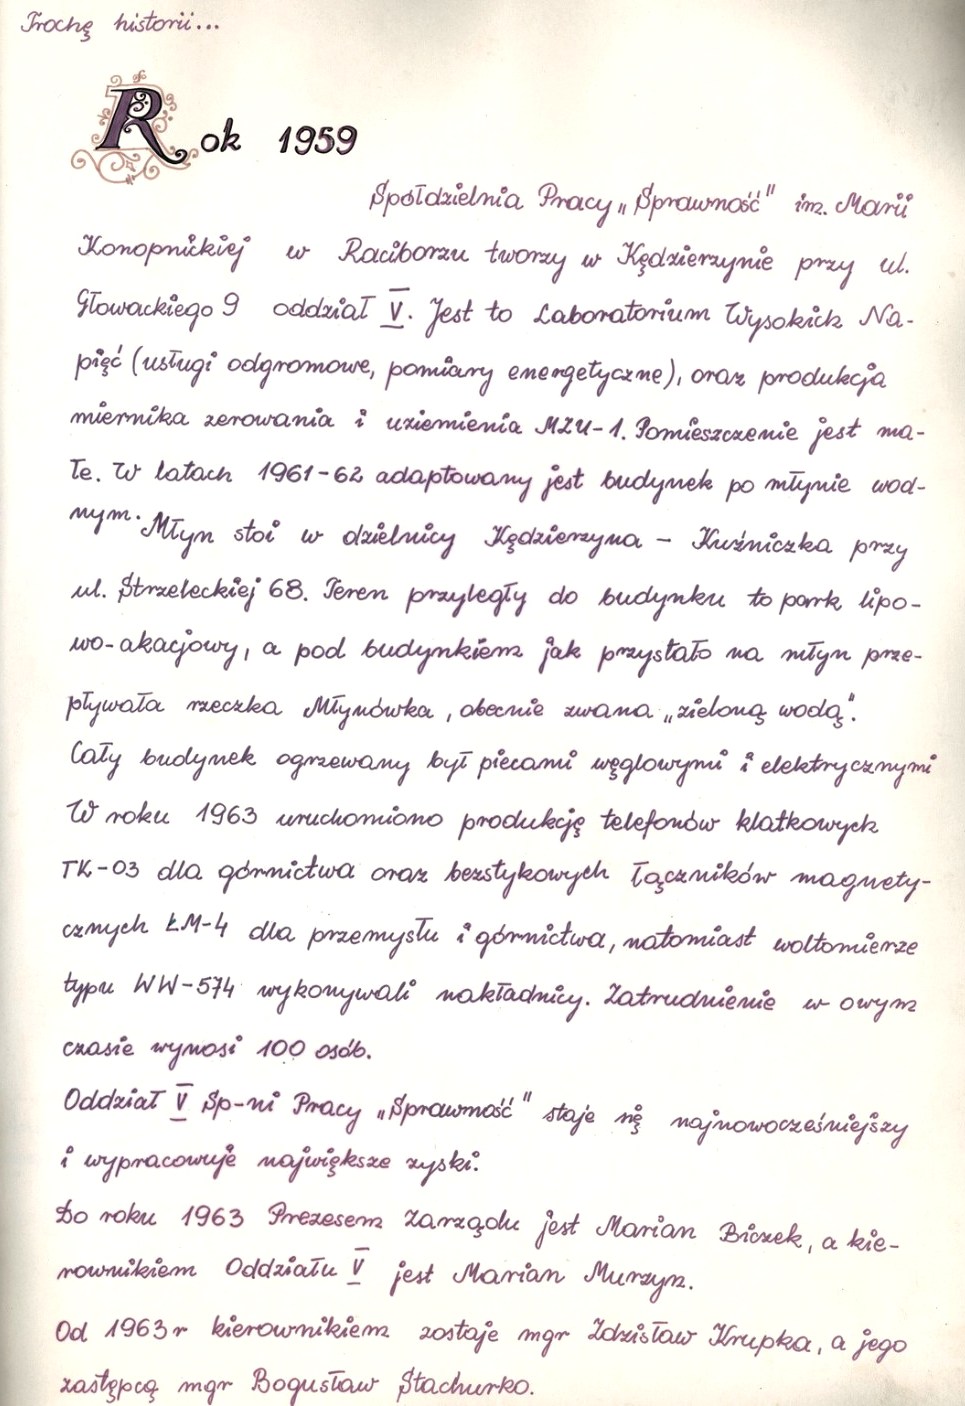 Trochę historii...
Rok 1959
Spółdzielnia Pracy „Sprawność" im. Marii
Konopnickiej w Raciborzu tworzy w Kędzierzynie przy ul.
Głowackiego 9 oddział V. Jest to Laboratorium Wysokich Na-
pięć (usługi odgromowe, pomiary energetyczne), oraz produkcja
miernika zerowania i uziemienia MZU-1. Pomieszczenie jest ma-
łe. W latach 1961-62 adaptowany jest budynek po młynie wod-
nym. Młyn stoi w dzielnicy Kędzierzyna - Kuźniczka przy
ul. Strzeleckiej 68. Teren przyległy do budynku to park lipo-
wo-akacjowy, a pod budynkiem jak przystało na młyn prze-
pływała rzeczka Młynówka, obecnie zwana „zieloną wodą".
Cały budynek ogrzewany był piecami węglowymi i elektrycznymi
W roku 1963 uruchomiono produkcję telefonów klatkowych
TK-03 dla górnictwa oraz bezstykowych łączników magnety-
cznych ŁM-4 dla przemysłu i górnictwa, natomiast woltomierze
typu WW-574 wykonywali nakładnicy. Zatrudnienie w owym
czasie wynosi 100 osób.
Oddział V Sp-ni Pracy „Sprawność" staje się najnowocześniejszy
i wypracowuje największe zyski.
Do roku 1963 Prezesem Zarządu jest Marian Biczek, a kie-
rownikiem Oddziału V jest Marian Murzyn.
Od 1963 r kierownikiem zostaje mgr Zdzisław Krupka, a jego
zastępcą mgr Bogusław Stachurko.